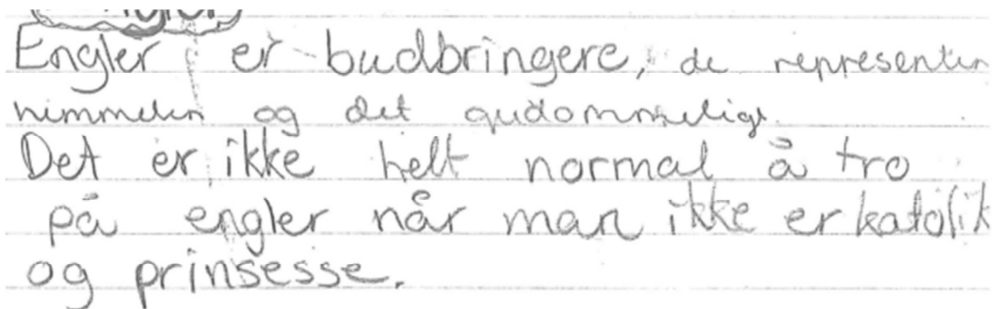 Engler er budbringere, de representer
himmelen og det guddommelige.
Det er ikke helt normal å tro
på engler når man ikke er katolik
og prinsesse.